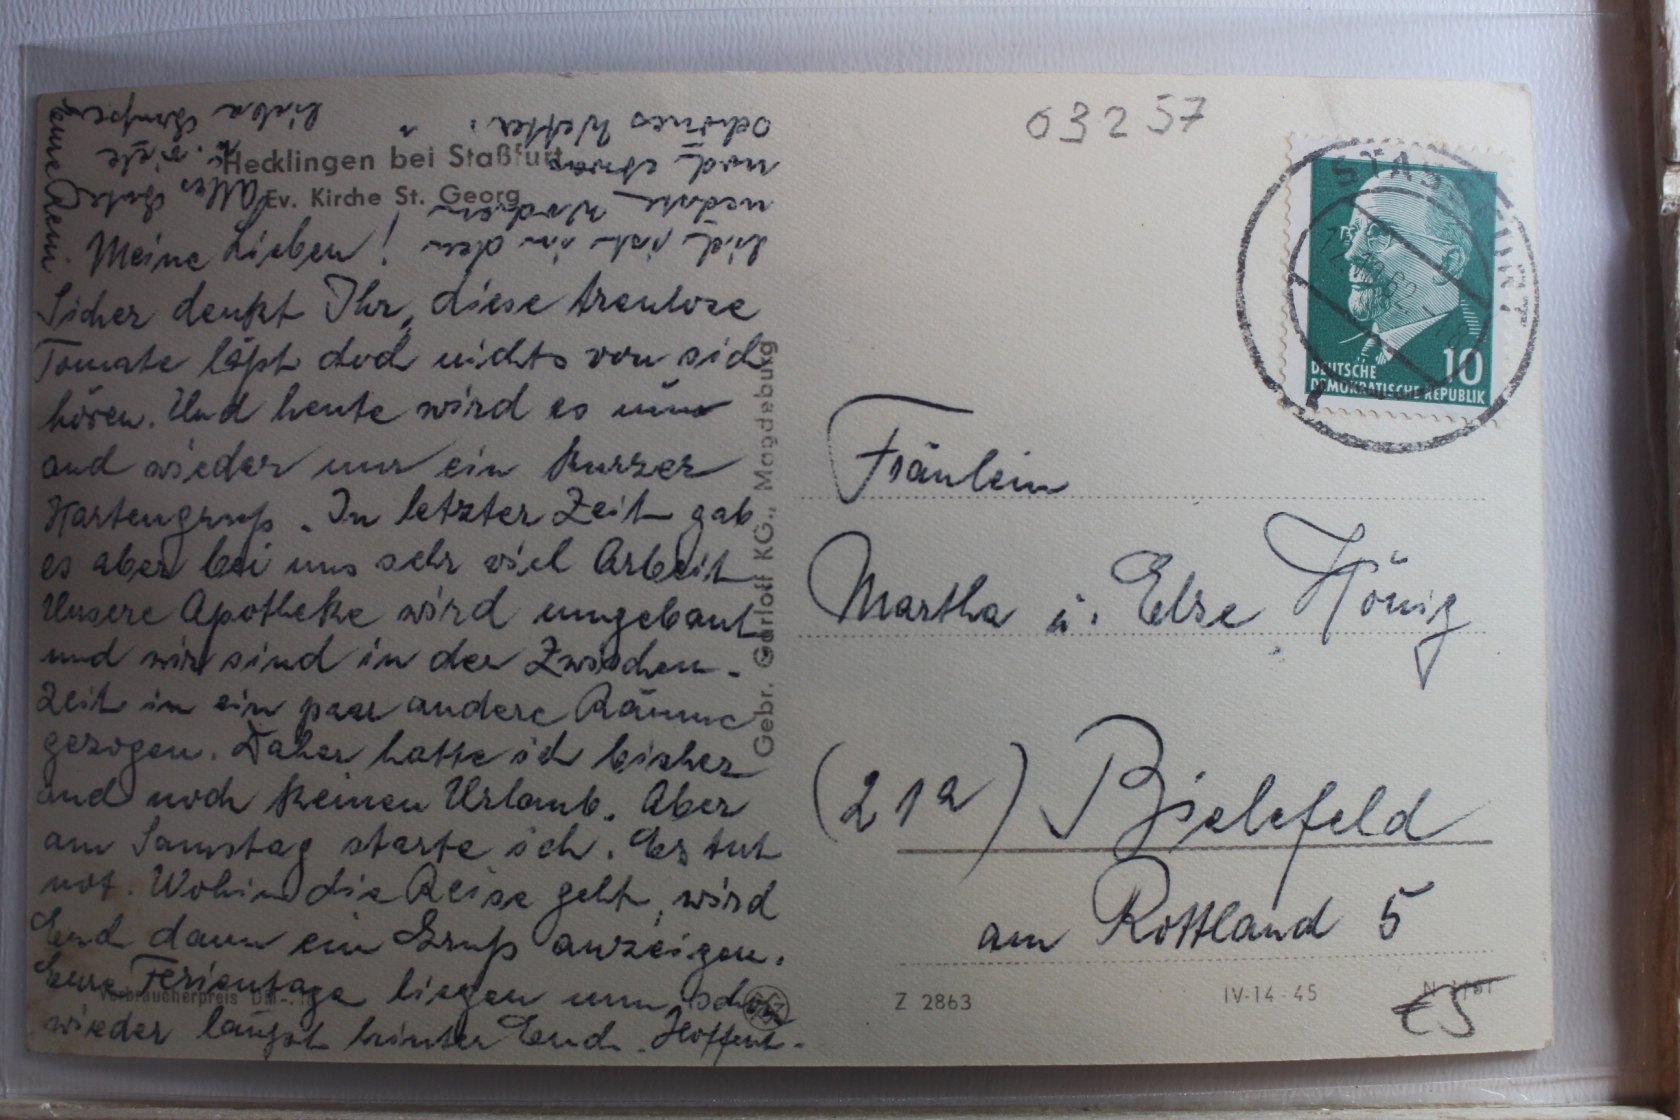 03257
STASSFURT
DEUTSCHE
DEMOKRATISCHE REPUBLIK
10
Hecklingen bei Staßfurt
Ev. Kirche St. Georg
Meine Lieben!
Sicher denkt Ihr, diese treulose
Tomate läßt doch nichts von sich
hören. Und heute wird es nun
auch wieder nur ein kurzer
Kartengruß. In letzter Zeit gab
es aber bei uns sehr viel Arbeit
Unsere Apotheke wird umgebaut
und wir sind in der Zwischen-
zeit in ein paar andere Räume
gezogen. Daher hatte ich bisher
auch noch keinen Urlaub. Aber
am Samstag starte ich. Es tut
not. Wohin die Reise geht, wird
Euch dann ein Gruß anzeigen.
Eure Ferientage liegen nun schon
wieder längst hinter Euch. Hoffent-
lich habt in den
nächsten Wochen
noch etwas
schönes Wetter.
Alles Gute
u. viele
liebe Grüße
Gebr. Garloff KG., Magdeburg
Verbraucherpreis
Fräulein
Martha u. Else König
(21a) Bielefeld
am Rottland 5
Z 2863
IV-14-45